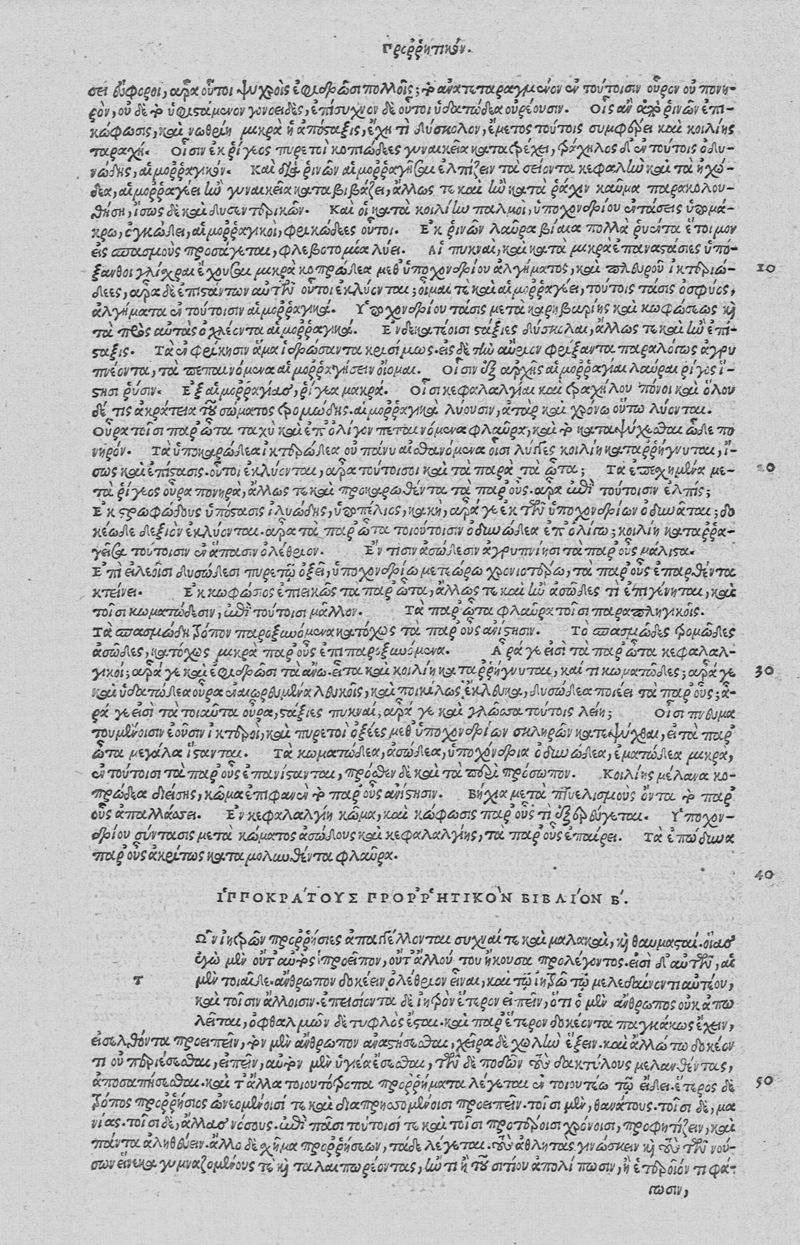 Προῤῥητικόν.
σει ἔκφοροι, ἆρα οὗτοι ψυχροῖς ἐφιδρῶσι πολλοῖς; τὸ ἀνατεταραγμένον ἐν τούτοισιν οὖρον οὐ πονη-
ρὸν, οὐδὲ τὸ ὑφιστάμενον γονοειδὲς, ἐπίσυχνον δὲ οὗτοι ὑδατώδεα οὐρέουσιν. Οἷς ἂν ἀπὸ ῥινῶν ἐπι-
κώφωσις, καὶ νωθείη μικρὰ ἡ ἀπόσταξις, ἔχει τι δύσκολον, ἔμετος τούτοις συμφέρει καὶ κοιλίης
ταραχή. Οἷσιν ἐκ ῥίγεος πυρετοὶ κοπιώδεες γυναικεῖα κατατρέχει, τράχηλος δ' ἐν τούτοις ὀδυ-
νώδης, αἱμοῤῥαγικόν. Καὶ διὰ ῥινῶν αἱμοῤῥαγῆσαι ἐλπίζειν τὰ σείοντα κεφαλὴν καὶ τὰ ἠχώ-
δεα, αἱμοῤῥαγέει ἢν γυναικεῖα καταβιβάζει, ἄλλως τε καὶ ἢν κατὰ ῥάχιν καῦμα παρακολου-
θήσῃ, ἴσως δὲ καὶ δυσεντερικῶν. Καὶ οἱ κατὰ κοιλίην παλμοὶ, ὑποχονδρίου ἐντάσεις ὑπομά-
κρῳ, ὀγκώδει, αἱμοῤῥαγικοὶ, φρικώδεες οὗτοι. Ἐκ ῥινῶν λαῦρα βίαια πολλὰ ῥυέντα ἔτοιμον
εἰς σπασμοὺς προσάγεται, φλεβοτομίη λύει. Αἱ πυκναὶ, καὶ κατὰ μικρὰ ἐπαναστάσιες ὑπό- 10
ξανθοι γλίσχραι ἔχουσαι μικρὰ κοπρώδεα μεθ' ὑποχονδρίου ἀλγήματος, καὶ πλευροῦ ἰκτεριώ-
δεες, ἆρα δὲ ἐπιστάντων αὐτῶν οὗτοι ἐκλύονται; οἶμαί τε καὶ αἱμοῤῥαγέει, τούτοις τάσις ὀσφύος,
ἀλγήματα ἐν τούτοισιν αἱμοῤῥαγικά. Ὑποχονδρίου τάσις μετὰ καρηβαρίης καὶ κωφώσεως καὶ
τὰ πρὸς αὐτὰς ὀχλέοντα αἱμοῤῥαγικά. Ἑνδεκαταῖοι στάξιες δύσκολαι, ἄλλως τε καὶ ἢν ἐπί-
σταξις. Τὰ ἐν φρίκῃσιν ἅμα ἱδρώσαντα κρισίμως. εἰς δὲ τὴν αὔριον φρίξαντα παραλόγως ἀγρυ
πνέοντα, τὰ πεπαινόμενα αἱμοῤῥαγήσειν οἴομαι. Οἷσιν ἐξ ἀρχῆς αἱμοῤῥαγίαι λαῦραι ῥῖγος ἵ-
στησι ῥύσιν. Ἐξ αἱμοῤῥαγίας, ῥίγεα μακρά. Οἷσι κεφαλαλγίαι καὶ τραχήλου πόνοι καὶ ὅλου
δέ τις ἀκράτεια τοῦ σώματος τρομώδης. αἱμοῤῥαγικὰ λύουσιν, ἀτὰρ καὶ χρόνῳ οὕτω λύονται.
Οὖρα τοῖσι παρ' ὦτα ταχὺ καὶ ἐπ' ὀλίγον πεπαινόμενα φλαῦρα, καὶ τὸ καταψύχεσθαι ὧδε πο
νηρόν. Τὰ ὑποκαρώδεα ἰκτερώδεα οὐ πάνυ αἰσθανόμενα οἷσι λύγγες κοιλίη καταῤῥήγνυται, ἴ-
σως καὶ ἐπίστασις. οὗτοι ἐκλύονται, ἆρα τούτοισι καὶ τὰ παρὰ τὰ ὦτα; Τὰ ἐπισχημένα με- 20
τὰ ῥίγεος οὖρα πονηρὰ, ἄλλως τε καὶ προκαρωθέντα τὰ παρ' οὖς. ἆρα ἐπὶ τούτοισιν ἐλπίς;
Ἐκ στροφώδους ὑπόστασις ἰλυώδης, ὑποπέλιος, κακὴ, ἆρά γε ἐκ τῶν ὑποχονδρίων ὀδυνᾶται; δο
κέω δὲ δεξιὸν ἐκλύονται. ἆρα τὰ παρ' ὦτα τοιούτοισιν ὀδυνώδεα ἐπ' ὀλίγῳ; κοιλίη καταῤῥα-
γεῖσα τούτοισιν ἐν ἅπασιν ὀλέθριον. Ἐν τῇσιν ἀσώδεσιν ἀγρυπνίῃσι τὰ παρ' οὖς μάλιστα.
Ἐπὶ εἰλεοῖσι δυσώδεσι πυρετῷ ὀξεῖ, ὑποχονδρίῳ μετεώρῳ χρονιωτέρῳ, τὰ παρ' οὖς ἐπαρθέντα
κτείνει. Ἐκ κωφώσιος ἐπιεικῶς τὰ παρ' ὦτα, ἄλλως τε καὶ ἢν ἀσῶδές τι ἐπιγένηται, καὶ
τοῖσι κωματώδεσιν, ἐπὶ τούτοισι μᾶλλον. Τὰ παρ' ὦτα φλαῦρα τοῖσι παραπληγικοῖς.
Τὰ σπασμώδη τρόπον παροξυνόμενα κατόχως τὰ παρ' οὖς ἀνίστησιν. Τὸ σπασμῶδες τρομῶδες
ἀσῶδες, κατόχως μικρὰ παρ' οὖς ἐπιπαροξυνόμενα. Ἆρά γε εἰσὶ τὰ παρ' ὦτα κεφαλαλ-
γικοί; ἆρά γε καὶ ἐφιδρῶσι τὰ ἄνω. εἶτα καὶ κοιλίη καταῤῥήγνυται, καί τι κωματῶδες; ἆρά γε 30
καὶ ὑδατώδεα οὖρα ἐναιωρεύμενα λευκοῖς, καὶ ποικίλως ἔκλευκα, δυσώδεα ποιέει τὰ παρ' οὖς; ἆ-
ρά γε εἰσὶ τὰ τοιαῦτα οὖρα, στάξιες πυκναὶ, ἆρά γε καὶ γλῶσσα τούτοις λείη; Οἷσι πνευμα
τουμένοισιν ἐοῦσιν ἴκτεροι, καὶ πυρετοὶ ὀξέες μεθ' ὑποχονδρίων σκληρῶν κατεψύχθαι, εἶτα παρ'
ὦτα μεγάλα ἵστανται. Τὰ κωματώδεα, ἀσώδεα, ὑποχόνδρια ὀδυνώδεα, ἐματώδεα μικρὰ,
ἐν τούτοισι τὰ παρ' οὖς ἐπανίστανται, πρόσθεν δὲ καὶ τὰ περὶ πρόσωπον. Κοιλίης μέλανα κο-
πρώδεα διείσης, κῶμα ἐπιφανὲν τὸ παρ' οὖς ἀνίστησιν. Βήχια μετὰ πτυελισμοὺς ὄντα τὸ παρ'
οὖς ἀπαλλάσσει. Ἐν κεφαλαλγίῃ κῶμα, καὶ κώφωσις παρ' οὖς τι ἐξερεύγεται. Ὑποχον-
δρίου σύντασις μετὰ κώματος ἀσώδους καὶ κεφαλαλγίης, τὰ παρ' οὖς ἐπαίρει. Τὰ ἐπώδυνα
παρ' οὖς ἀκρίτως καταμολυνθέντα φλαῦρα.
40
ἹΠΠΟΚΡΆΤΟΥΣ ΠΡΟΡῬΗΤΙΚῸΝ ΒΙΒΛΊΟΝ Β΄.
Ὧν ἰητρῶν προῤῥήσιες ἀπαγγέλλονται συχναί τε καὶ μαλακαὶ, καὶ θαυμασταὶ. οἵας
ἐγὼ μὲν οὔτ' αὐτὸς προεῖπον, οὔτ' ἄλλου του ἤκουσα προλέγοντος. εἰσὶ δ' αὐτῶν, αἱ
τ μὲν τοιαίδε. ἄνθρωπον δοκέειν ὀλέθριον εἶναι, καὶ τῷ ἰητρῷ τῷ μελεδαίνοντι αὐτέου,
καὶ τοῖσιν ἄλλοισιν. ἐπεισιόντα δὲ ἰητρὸν ἕτερον εἰπεῖν, ὅτι ὁ μὲν ἄνθρωπος οὐκ ἀπο
λεῖται, ὀφθαλμῶν δὲ τυφλὸς ἔσται. καὶ παρ' ἕτερον δοκέοντα παγκάκως ἔχειν,
εἰσελθόντα προειπεῖν, τὸν μὲν ἄνθρωπον ἀναστήσεσθαι, χεῖρα δὲ χωλὴν ἕξειν. καὶ ἄλλῳ τῳ δοκέον
τι οὐ περιέσεσθαι, εἰπεῖν, αὐτὸν μὲν ὑγιέα ἔσεσθαι, τῶν δὲ ποδῶν τοὺς δακτύλους μελανθέντας,
ἀποσαπήσεσθαι. καὶ τἄλλα τοιουτότροπα προῤῥήματα λέγεται ἐν τοιουτέῳ τῷ εἴδει. ἕτερος δὲ 50
τρόπος προῤῥήσιος ὠνεομένοισί τε καὶ διαπρησσομένοισι προειπεῖν. τοῖσι μὲν, θανάτους. τοῖσι δὲ, μα
νίας. τοῖσι δὲ, ἄλλας νόσους. ἐπὶ πᾶσι τουτοισί τε καὶ τοῖσι προτέροισι χρόνοισι, προφητίζειν, καὶ
πάντα ἀληθεύειν. ἄλλο δὲ σχῆμα προῤῥήσεων, τάδε λέγεται. τοὺς ἀθλητὰς γινώσκειν καὶ τοὺς τῶν νού-
σων εἵνεκα γυμναζομένους τε καὶ ταλαιπωρέοντας, ἤν τι ἢ τοῦ σιτίου ἀπολίπωσιν, ἢ ἑτεροῖόν τι φά-
γωσιν,